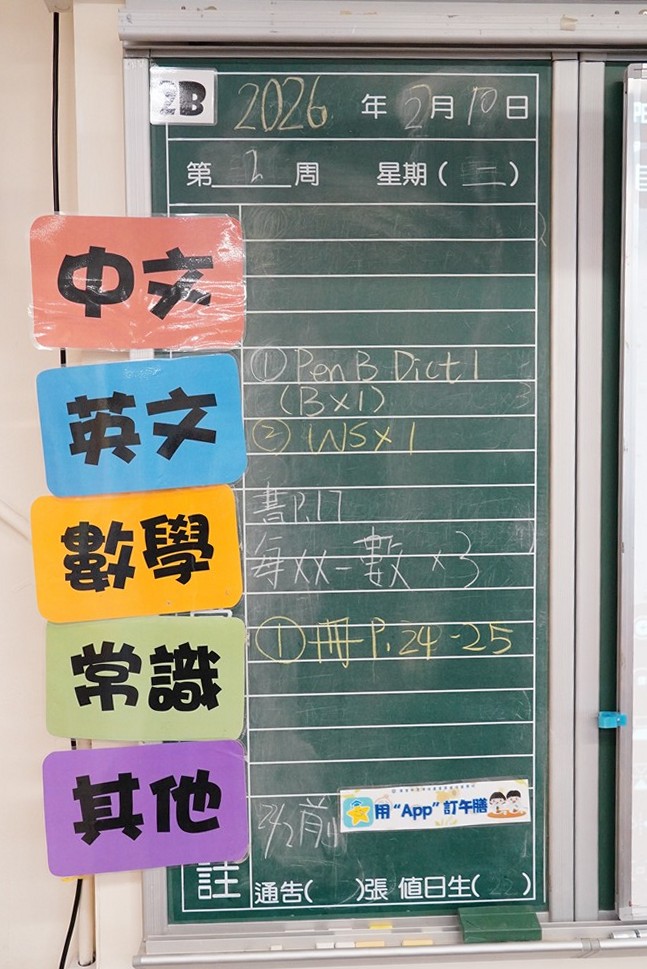 2B
2026 年 2月 10日
第 2 周 星期 ( 二 )
中文
英文
① Pen B Dict 1
(B×1)
② WS×1
數學
書P.17
每××一數 ×3
常識
① 冊 P.24-25
其他
前
用“App”訂午膳
註
通告( )張 值日生( )